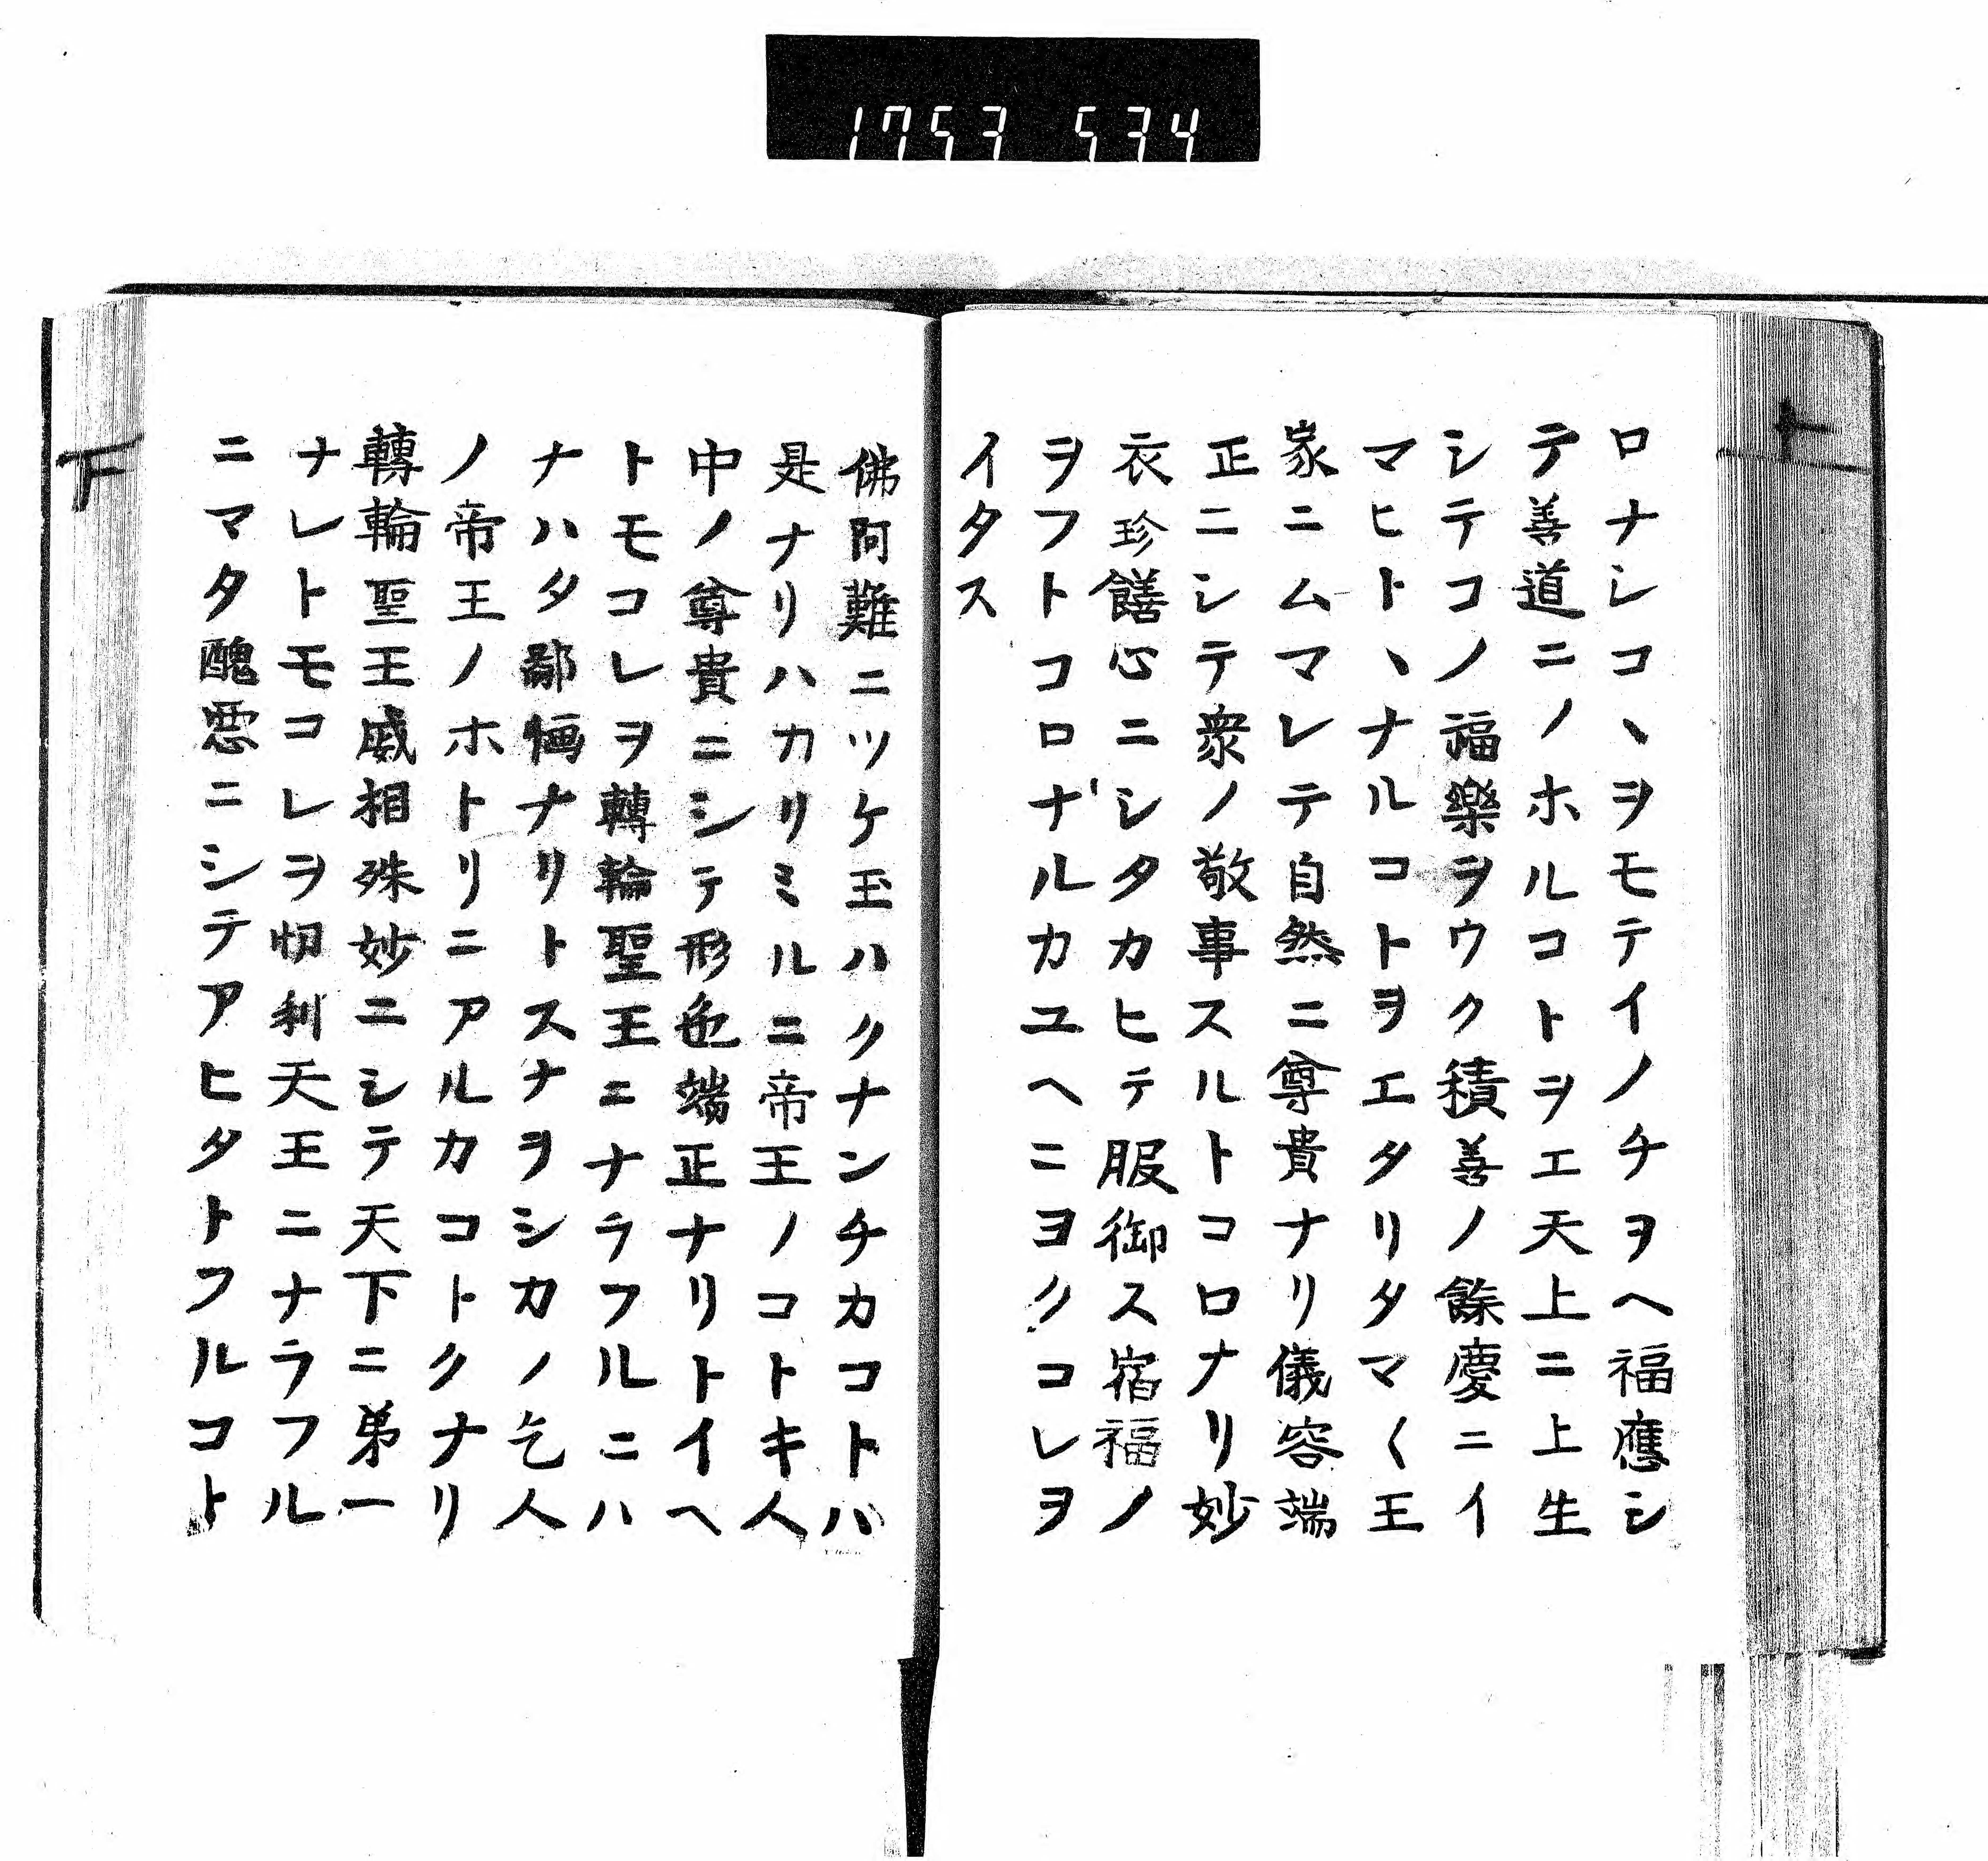 1753 534
ロナシコヽヲモテイノチヲヘ福應シ
テ善道ニノホルコトヲエ天上ニ上生
シテコノ福樂ヲウク積善ノ餘慶ニイ
マヒトヽナルコトヲエタリタマ〱王
家ニムマレテ自然ニ尊貴ナリ儀容端
正ニシテ衆ノ敬事スルトコロナリ妙
衣珍饍心ニシタカヒテ服御ス宿福ノ
ヲフトコロナルカユヘニヨクコレヲ
イタス
佛阿難ニツケ玉ハクナンチカコトハ
是ナリハカリミルニ帝王ノコトキ人
中ノ尊貴ニシテ形色端正ナリトイヘ
トモコレヲ轉輪聖王ニナラフルニハ
ナハタ鄙恓ナリトスナヲシカノ乞人
ノ帝王ノホトリニアルカコトクナリ
轉輪聖王威相殊妙ニシテ天下ニ弟一
ナレトモコレヲ忉利天王ニナラフル
ニマタ醜惡ニシテアヒタトフルコト